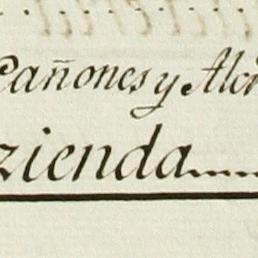 Cañones y Alcr
zienda.....